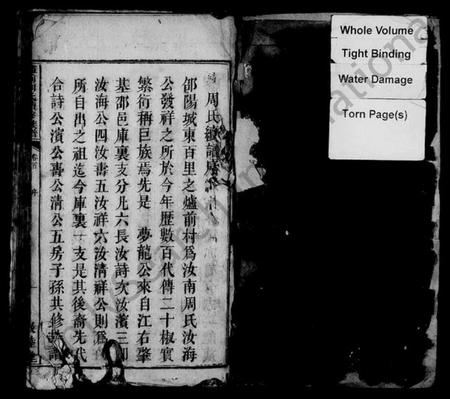 周氏續譜序
邵陽城東百里之爐前村為汝南周氏汝海
公發祥之所於今年歷數百代傳二十椒實
繁衍稱巨族焉先是 夢龍公來自江右肇
基邵邑庫裏支分凡六長汝詩次汝濱三
汝海公四汝壽五汝祥六汝清祥公則為
所自出之祖迄今庫裏一支是其後裔先代
合詩公濱公壽公清公五房子孫共修
Whole Volume
Tight Binding
Water Damage
Torn Page(s)